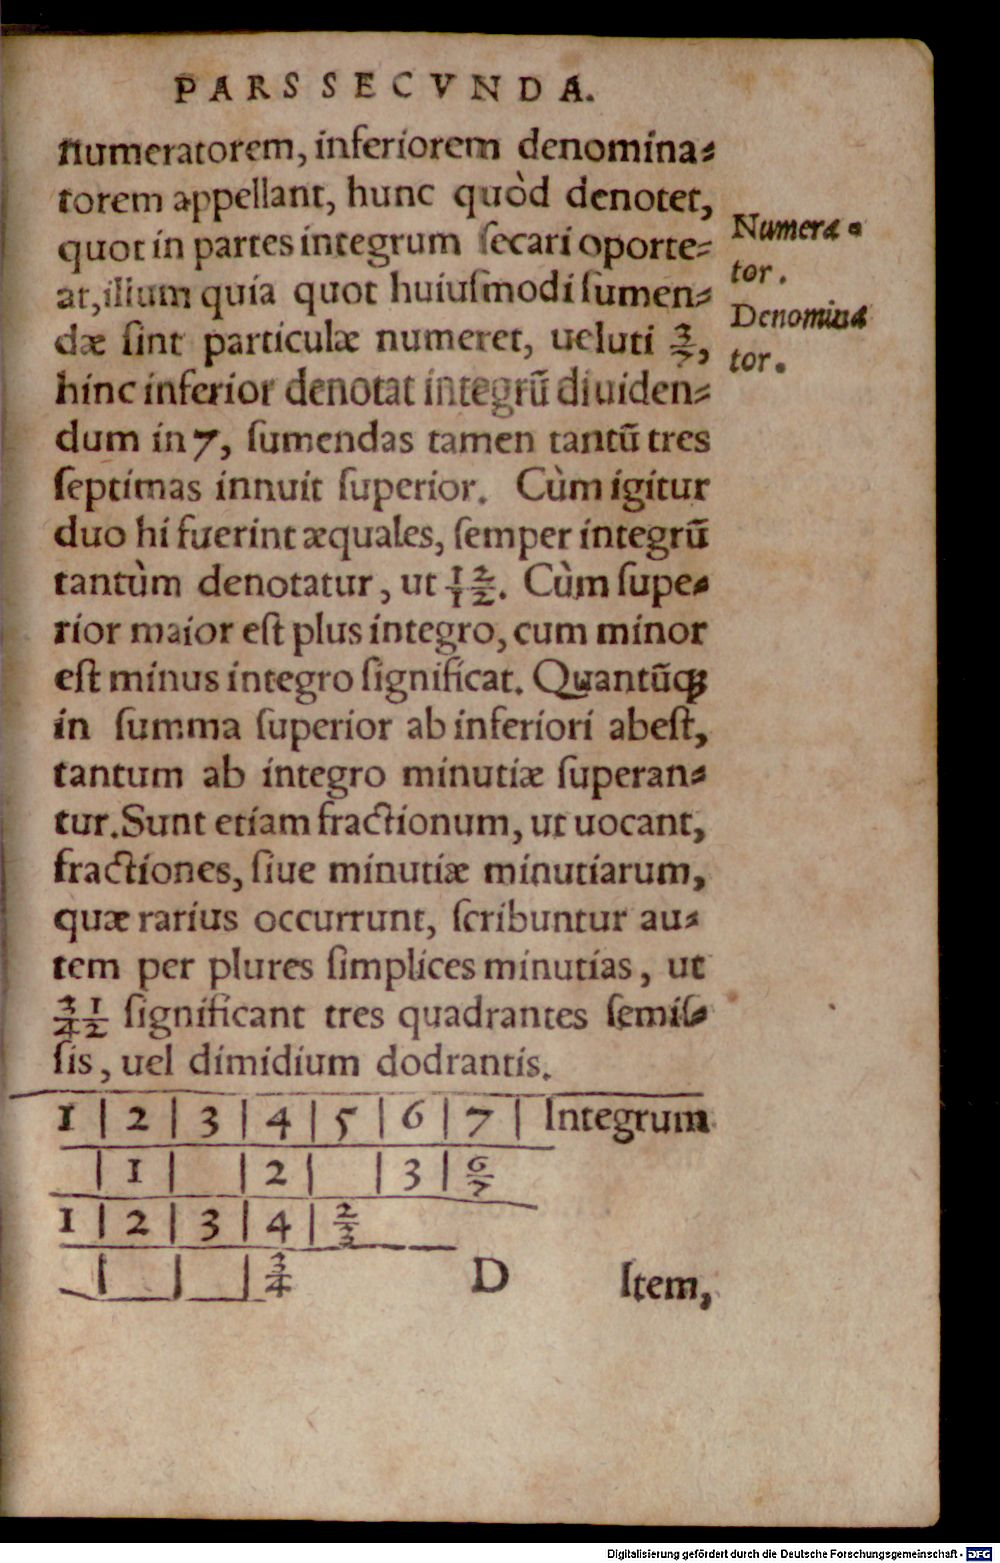 PARS SECVNDA.
numeratorem, inferiorem denomina⸗
torem appellant, hunc quòd denotet,
quot in partes integrum ſecari oporte⸗
at, illum quia quot huiuſmodi ſumen⸗
dæ ſint particulæ numeret, ueluti 3/7,
hinc inferior denotat integrũ diuiden⸗
dum in 7, ſumendas tamen tantũ tres
ſeptimas innuit ſuperior. Cùm igitur
duo hi fuerint æquales, ſemper integrũ
tantùm denotatur, ut 1/1 2/2. Cùm ſupe⸗
rior maior eſt plus integro, cum minor
eſt minus integro ſignificat. Quantũꝗ
in ſumma ſuperior ab inferiori abeſt,
tantum ab integro minutiæ ſuperan⸗
tur. Sunt etiam fractionum, ut uocant,
fractiones, ſiue minutiæ minutiarum,
quæ rarius occurrunt, ſcribuntur au⸗
tem per plures ſimplices minutias, ut
3/4 1/2 ſignificant tres quadrantes ſemiſ⸗
ſis, uel dimidium dodrantis.
Numera⸗
tor.
Denomina
tor.
1 | 2 | 3 | 4 | 5 | 6 | 7 | Integrum
| 1 | | 2 | | 3 | 6/7
1 | 2 | 3 | 4 | 2/3
| | | 3/4
D Item,
Digitalisierung gefördert durch die Deutsche Forschungsgemeinschaft - DFG